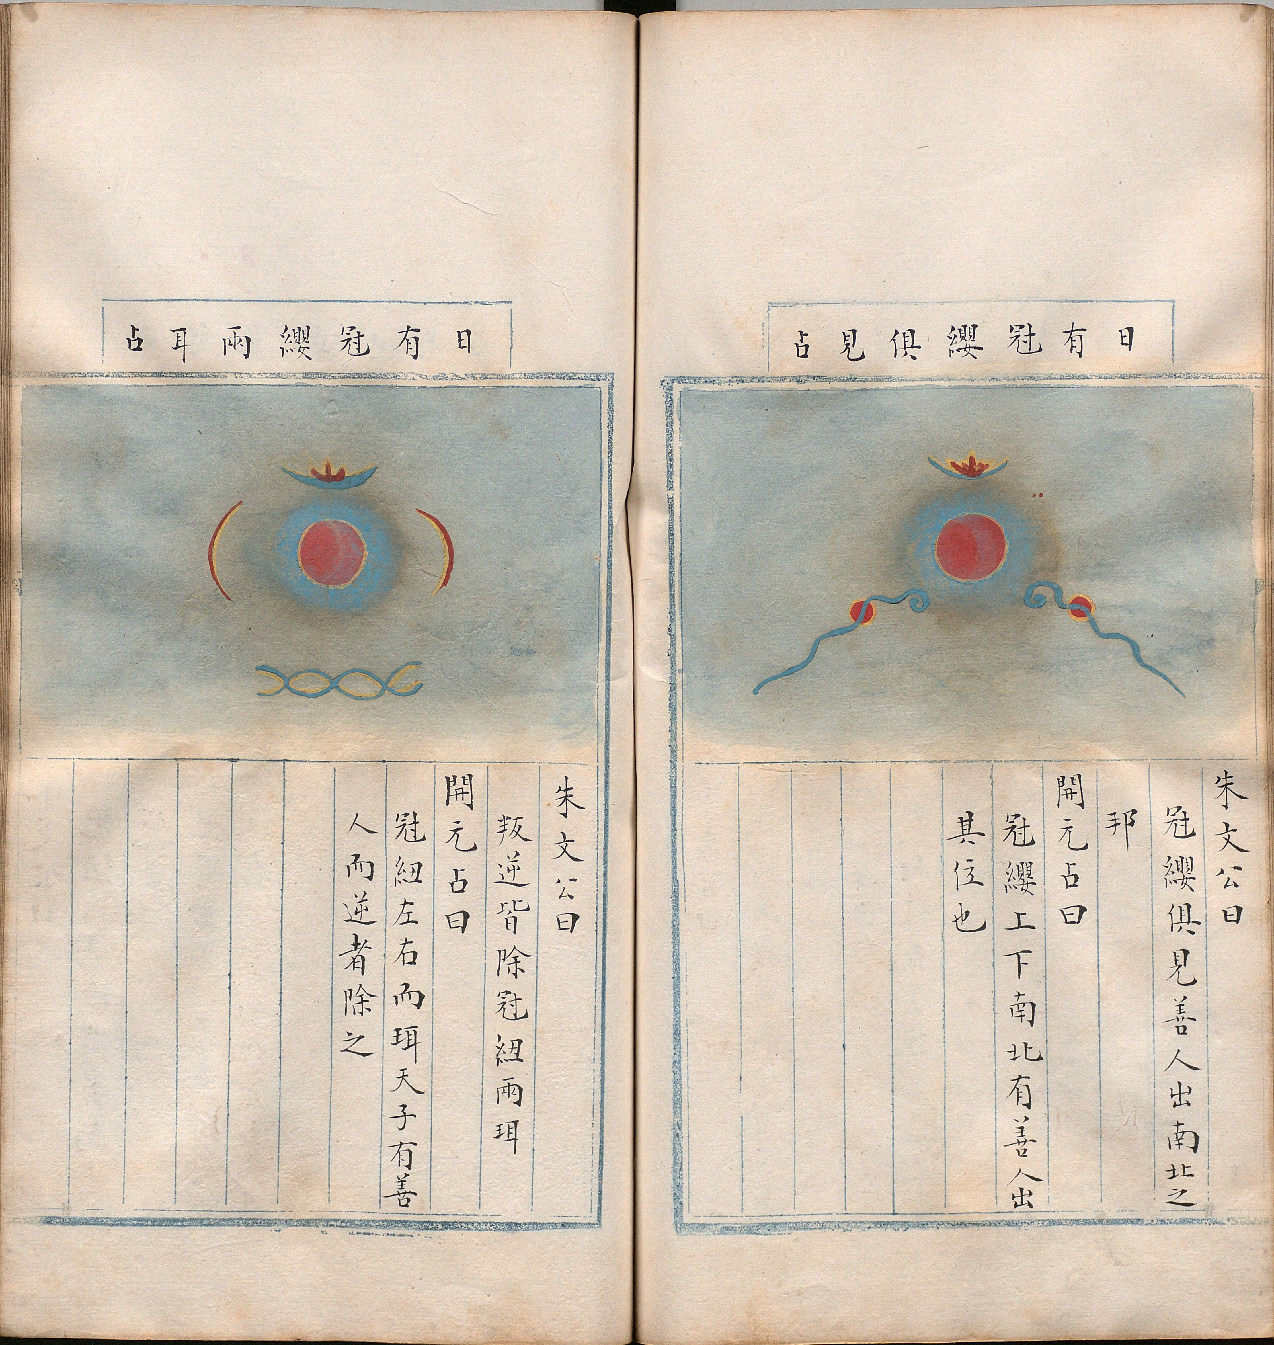 日有冠纓俱見占
朱文公曰
冠纓俱見善人出南北之
邦
開元占曰
冠纓上下南北有善人出
其位也
日有冠纓兩耳占
朱文公曰
叛逆皆除冠紐兩珥
開元占曰
冠紐左右而珥天子有善
人而逆者除之